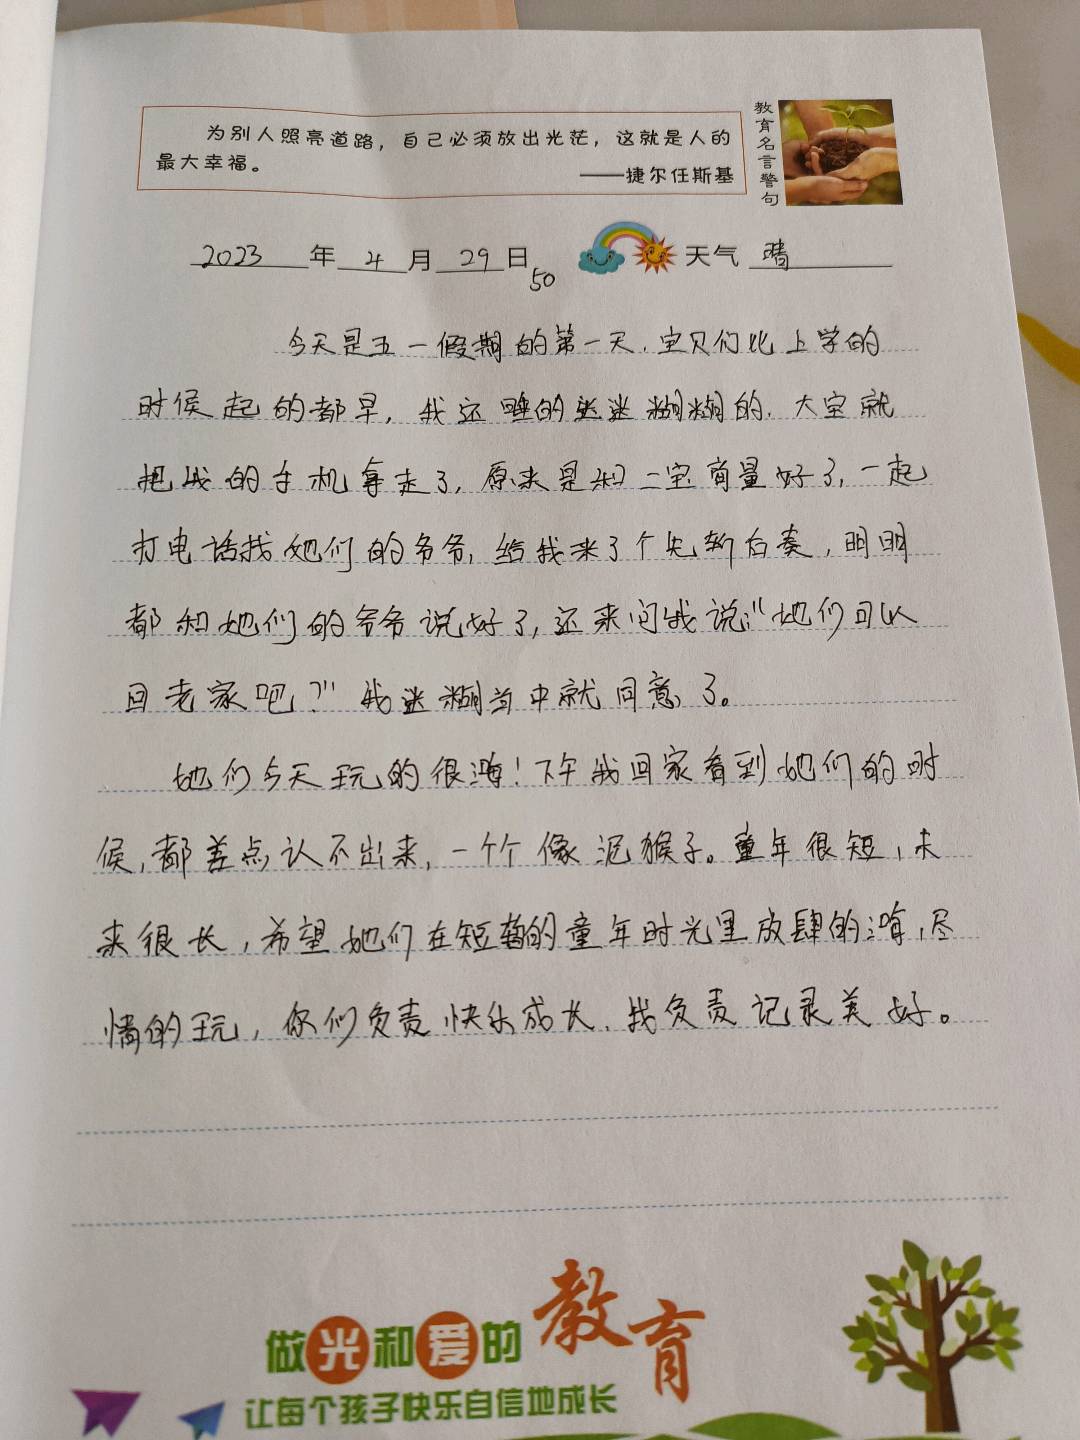 为别人照亮道路，自己必须放出光芒，这就是人的
最大幸福。
——捷尔任斯基
教育名言警句
2023年4月29日 天气 晴
50
今天是五一假期的第一天，宝贝们比上学的
时候起的都早，我还睡的迷迷糊糊的，大宝就
把我的手机拿走了，原来是和二宝商量好了，一起
打电话找她们的爷爷，给我来了个先斩后奏，明明
都和她们的爷爷说好了，还来问我说："她们可以
回老家吧？"我迷糊当中就同意了。
她们今天玩的很嗨！下午我回家看到她们的时
候，都差点认不出来，一个个像泥猴子。童年很短，未
来很长，希望她们在短暂的童年时光里放肆的嗨，尽
情的玩，你们负责快乐成长，我负责记录美好。
做光和爱的教育
让每个孩子快乐自信地成长